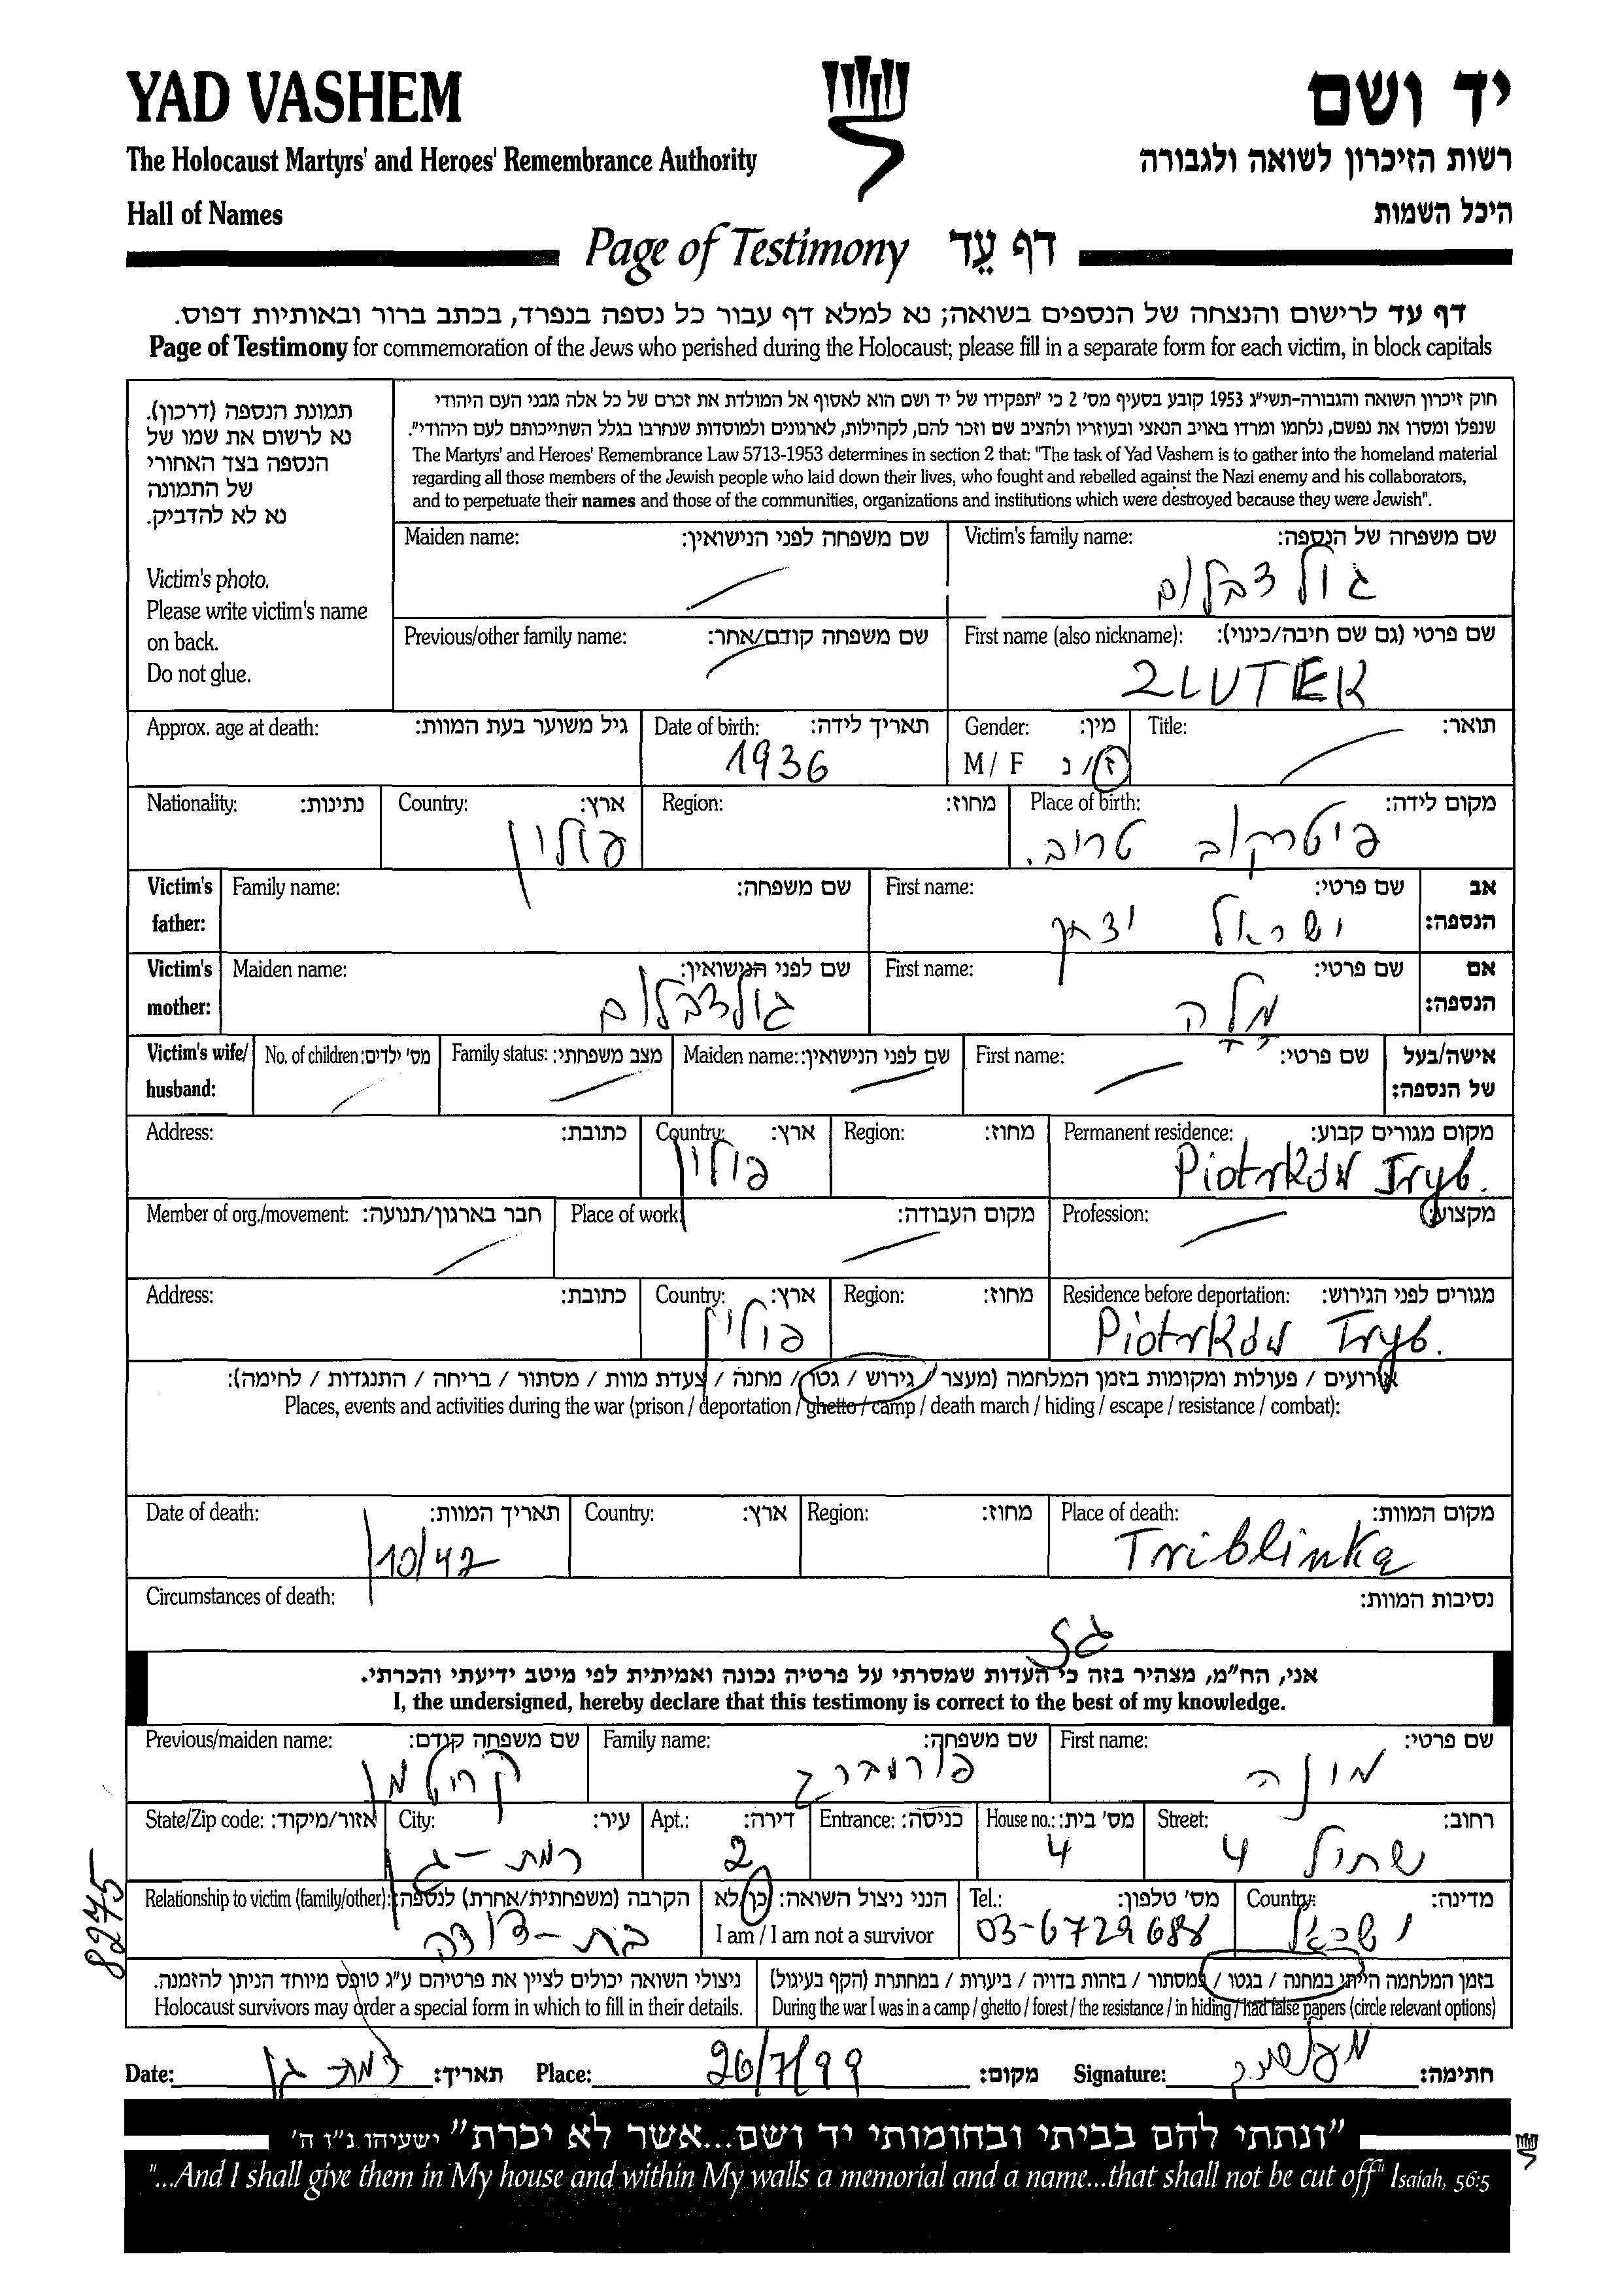 YAD VASHEM
יד ושם
The Holocaust Martyrs' and Heroes' Remembrance Authority
רשות הזיכרון לשואה ולגבורה
Hall of Names
היכל השמות
Page of Testimony דף עֵד
דף עד לרישום והנצחה של הנספים בשואה; נא למלא דף עבור כל נספה בנפרד, בכתב ברור ובאותיות דפוס.
Page of Testimony for commemoration of the Jews who perished during the Holocaust; please fill in a separate form for each victim, in block capitals
תמונת הנספה (דרכון).
נא לרשום את שמו של
הנספה בצד האחורי
של התמונה
נא לא להדביק.
Victim's photo.
Please write victim's name
on back.
Do not glue.
חוק זיכרון השואה והגבורה-תשי"ג 1953 קובע בסעיף מס' 2 כי "תפקידו של יד ושם הוא לאסוף אל המולדת את זכרם של כל אלה מבני העם היהודי
שנפלו ומסרו את נפשם, נלחמו ומרדו באויב הנאצי ובעוזריו ולהציב שם וזכר להם, לקהילות, לארגונים ולמוסדות שנחרבו בגלל השתייכותם לעם היהודי".
The Martyrs' and Heroes' Remembrance Law 5713-1953 determines in section 2 that: "The task of Yad Vashem is to gather into the homeland material
regarding all those members of the Jewish people who laid down their lives, who fought and rebelled against the Nazi enemy and his collaborators,
and to perpetuate their names and those of the communities, organizations and institutions which were destroyed because they were Jewish".
Victim's family name: שם משפחה של הנספה:
גולדבלום
Maiden name: שם משפחה לפני הנישואין:
First name (also nickname): שם פרטי (גם שם חיבה/כינוי):
ZLUTEK
Previous/other family name: שם משפחה קודם/אחר:
Title: תואר:
Gender: מין:
M / F ז/נ
Date of birth: תאריך לידה:
1936
Approx. age at death: גיל משוער בעת המוות:
Place of birth: מקום לידה:
פיטרקוב טריב.
Region: מחוז:
Country: ארץ:
פולין
Nationality: נתינות:
Victim's father: אב הנספה:
First name: שם פרטי:
ישראל יצחק
Family name: שם משפחה:
Victim's mother: אם הנספה:
First name: שם פרטי:
מלה
Maiden name: שם לפני הנישואין:
גולדבלום
Victim's wife/husband: אישה/בעל של הנספה:
First name: שם פרטי:
Maiden name: שם לפני הנישואין:
Family status: מצב משפחתי:
No. of children: מס' ילדים:
Permanent residence: מקום מגורים קבוע:
Piotrków Tryb.
Region: מחוז:
Country: ארץ:
פולין
Address: כתובת:
Profession: מקצוע:
Place of work: מקום העבודה:
Member of org./movement: חבר בארגון/תנועה:
Residence before deportation: מגורים לפני הגירוש:
Piotrków Tryb.
Region: מחוז:
Country: ארץ:
פולין
Address: כתובת:
אירועים / פעולות ומקומות בזמן המלחמה (מעצר / גירוש / גטו / מחנה / צעדת מוות / מסתור / בריחה / התנגדות / לחימה):
Places, events and activities during the war (prison / deportation / ghetto / camp / death march / hiding / escape / resistance / combat):
Place of death: מקום המוות:
Triblinka
Region: מחוז:
Country: ארץ:
Date of death: תאריך המוות:
10/42
Circumstances of death: נסיבות המוות:
גז
אני, הח"מ, מצהיר בזה כי העדות שמסרתי על פרטיה נכונה ואמיתית לפי מיטב ידיעתי והכרתי.
I, the undersigned, hereby declare that this testimony is correct to the best of my knowledge.
First name: שם פרטי:
מונה
Family name: שם משפחה:
Previous/maiden name: שם משפחה קודם:
Street: רחוב:
שתיל 4
House no.: מס' בית:
4
Entrance: כניסה:
Apt.: דירה:
2
City: עיר:
רמת-גן
State/Zip code: אזור/מיקוד:
Country: מדינה:
ישראל
Tel.: מס' טלפון:
03-6729688
הנני ניצול השואה: כן/לא
I am / I am not a survivor
Relationship to victim (family/other): הקרבה (משפחתית/אחרת) לנספה:
בת-דודה
8275
בזמן המלחמה הייתי במחנה / בגטו / במסתור / בזהות בדויה / ביערות / במחתרת (הקף בעיגול)
During the war I was in a camp / ghetto / forest / the resistance / in hiding / had false papers (circle relevant options)
ניצולי השואה יכולים לציין את פרטיהם ע"ג טופס מיוחד הניתן להזמנה.
Holocaust survivors may order a special form in which to fill in their details.
Signature: חתימה:
Place: 26/7/99 מקום:
Date: רמת גן תאריך:
"ונתתי להם בביתי ובחומותי יד ושם...אשר לא יכרת" ישעיהו נ"ו ה'
"...And I shall give them in My house and within My walls a memorial and a name...that shall not be cut off" Isaiah, 56:5